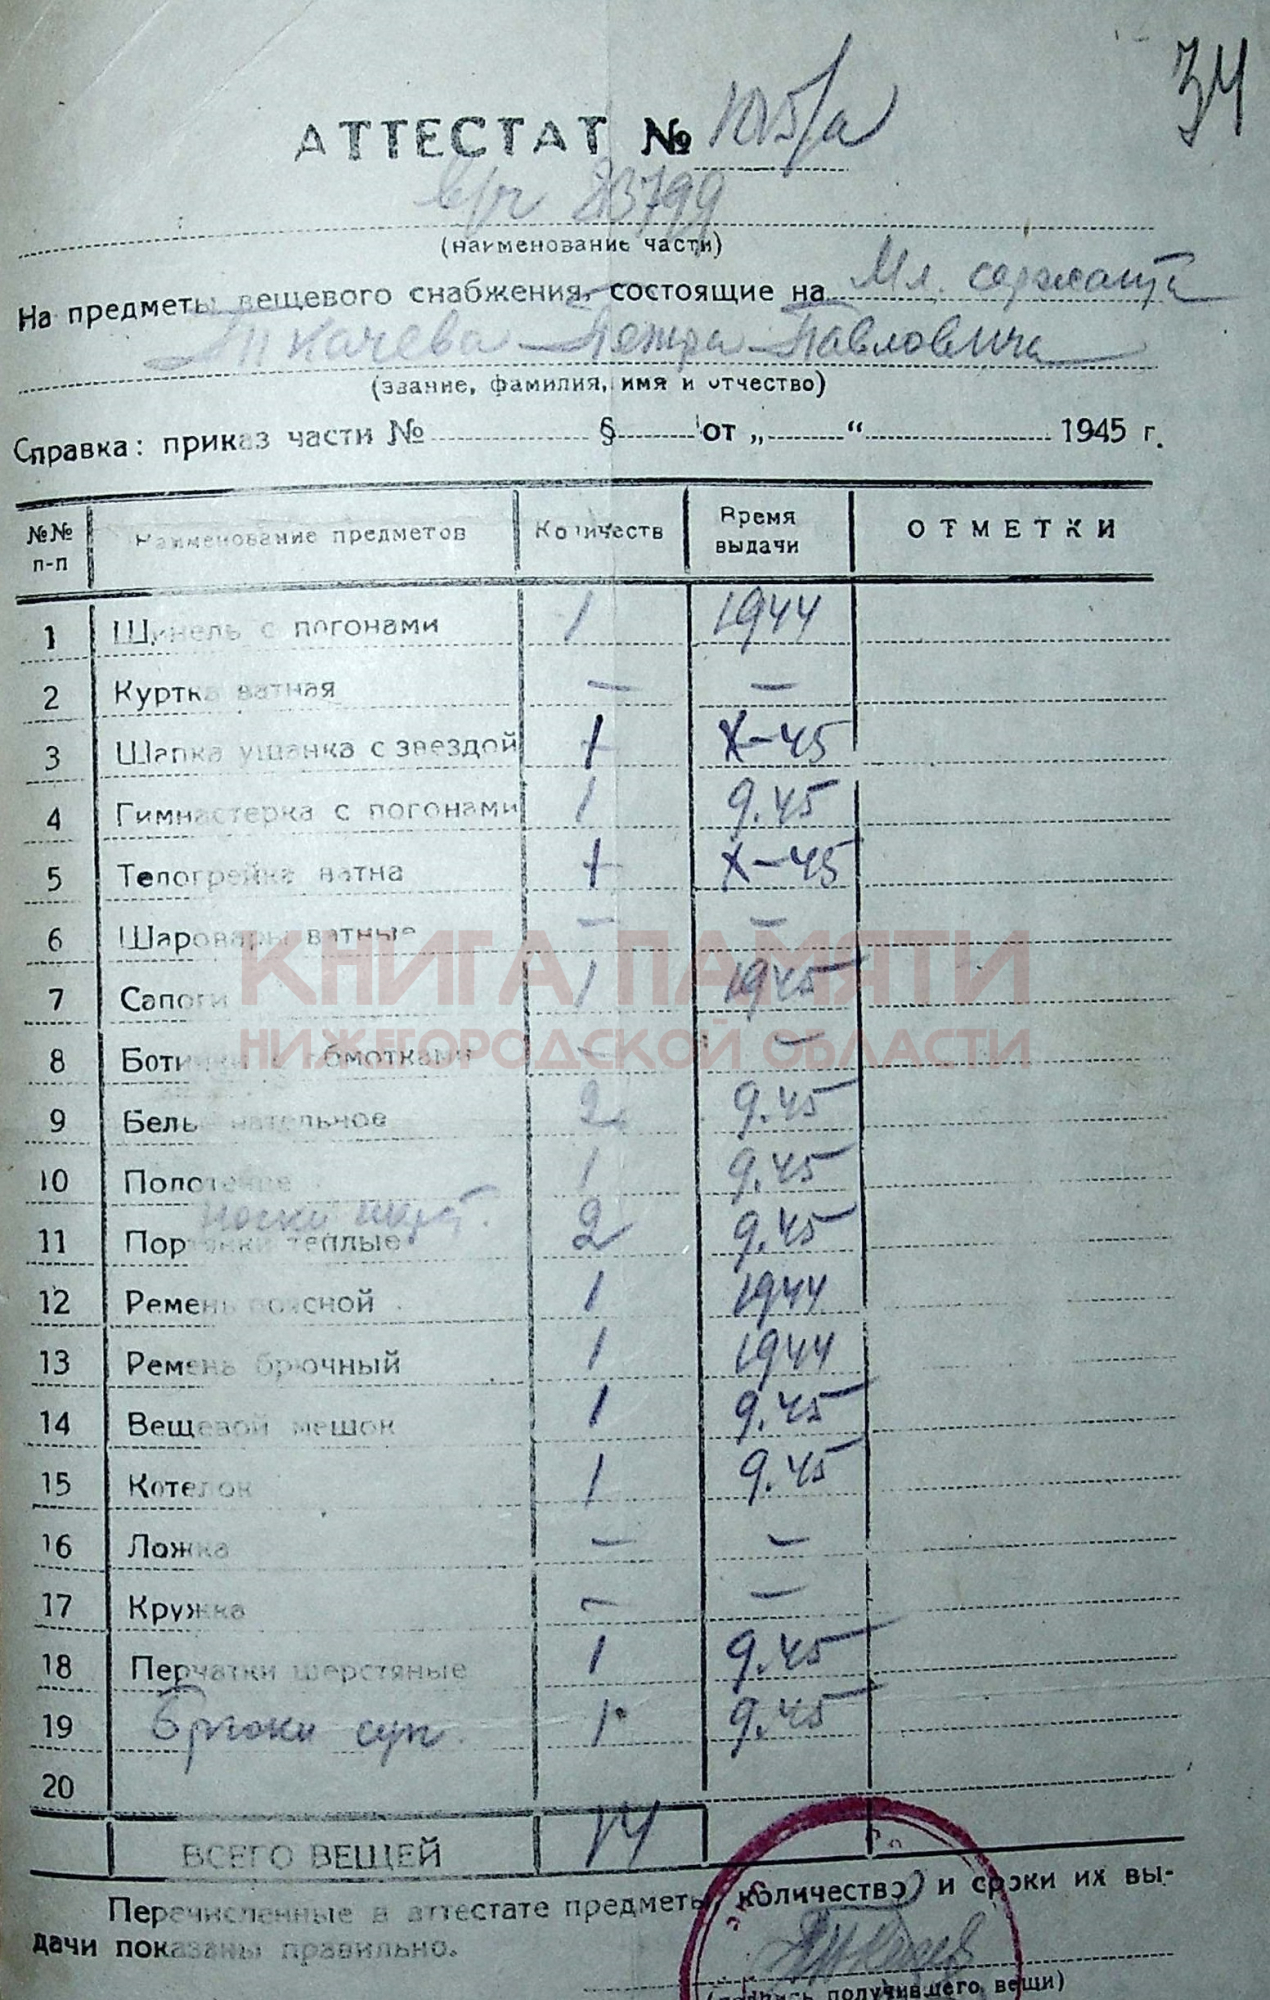 34
АТТЕСТАТ № 105/а
в/ч 83799
(наименование части)
На предметы вещевого снабжения, состоящие на Мл. сержанта
Ткачева Петра Павловича
(звание, фамилия, имя и отчество)
Справка: приказ части № § от „ “ 1945 г.
№№ п-п Наименование предметов Количеств Время выдачи ОТМЕТКИ
1 Шинель с погонами 1 1944
2 Куртка ватная — —
3 Шапка ушанка с звездой 1 X-45
4 Гимнастерка с погонами 1 9.45
5 Телогрейка ватна 1 X-45
6 Шаровары ватные — —
КНИГА ПАМЯТИ
7 Сапоги 1 1945
НИЖЕГОРОДСКОЙ ОБЛАСТИ
8 Ботинки с обмотками — —
9 Белье нательное 2 9.45
10 Полотенце 1 9.45
носки
11 Портянки теплые 2 9.45
12 Ремень поясной 1 1944
13 Ремень брючный 1 1944
14 Вещевой мешок 1 9.45
15 Котелок 1 9.45
16 Ложка — —
17 Кружка — —
18 Перчатки шерстяные 1 9.45
19 Брюки сук. 1 9.45
20
ВСЕГО ВЕЩЕЙ 14
Перечисленные в аттестате предметы, количество и сроки их вы-
дачи показаны правильно.
Ткачев
(подпись получившего вещи)